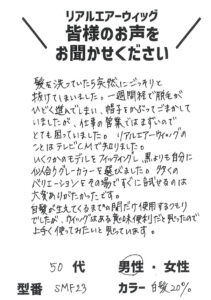 リアルエアーウィッグ
皆様のお声を
お聞かせください
髪を洗っていたら突然にごっそりと
抜けてしまいました。一週間程で脱毛が
ひどく進んでしまい、帽子をかぶってごまかして
いましたが、仕事の営業ではまずいので
とても困っていました。リアルエアーウィッグの
ことはテレビCMで知りました。
いくつかのモデルをフィッティングし、黒よりも自分に
似合うグレーカラーを選びました。多くの
バリエーションをその場ですぐに試せるのは
大変ありがたかったです。
自髪が生えてくるまでの間だけ使用するつもり
でしたが、ウィッグはある意味便利だと思ったので
上手く使ってみたいと思っています。
50 代 男性・女性
型番 SMF23 カラー 白髪20%